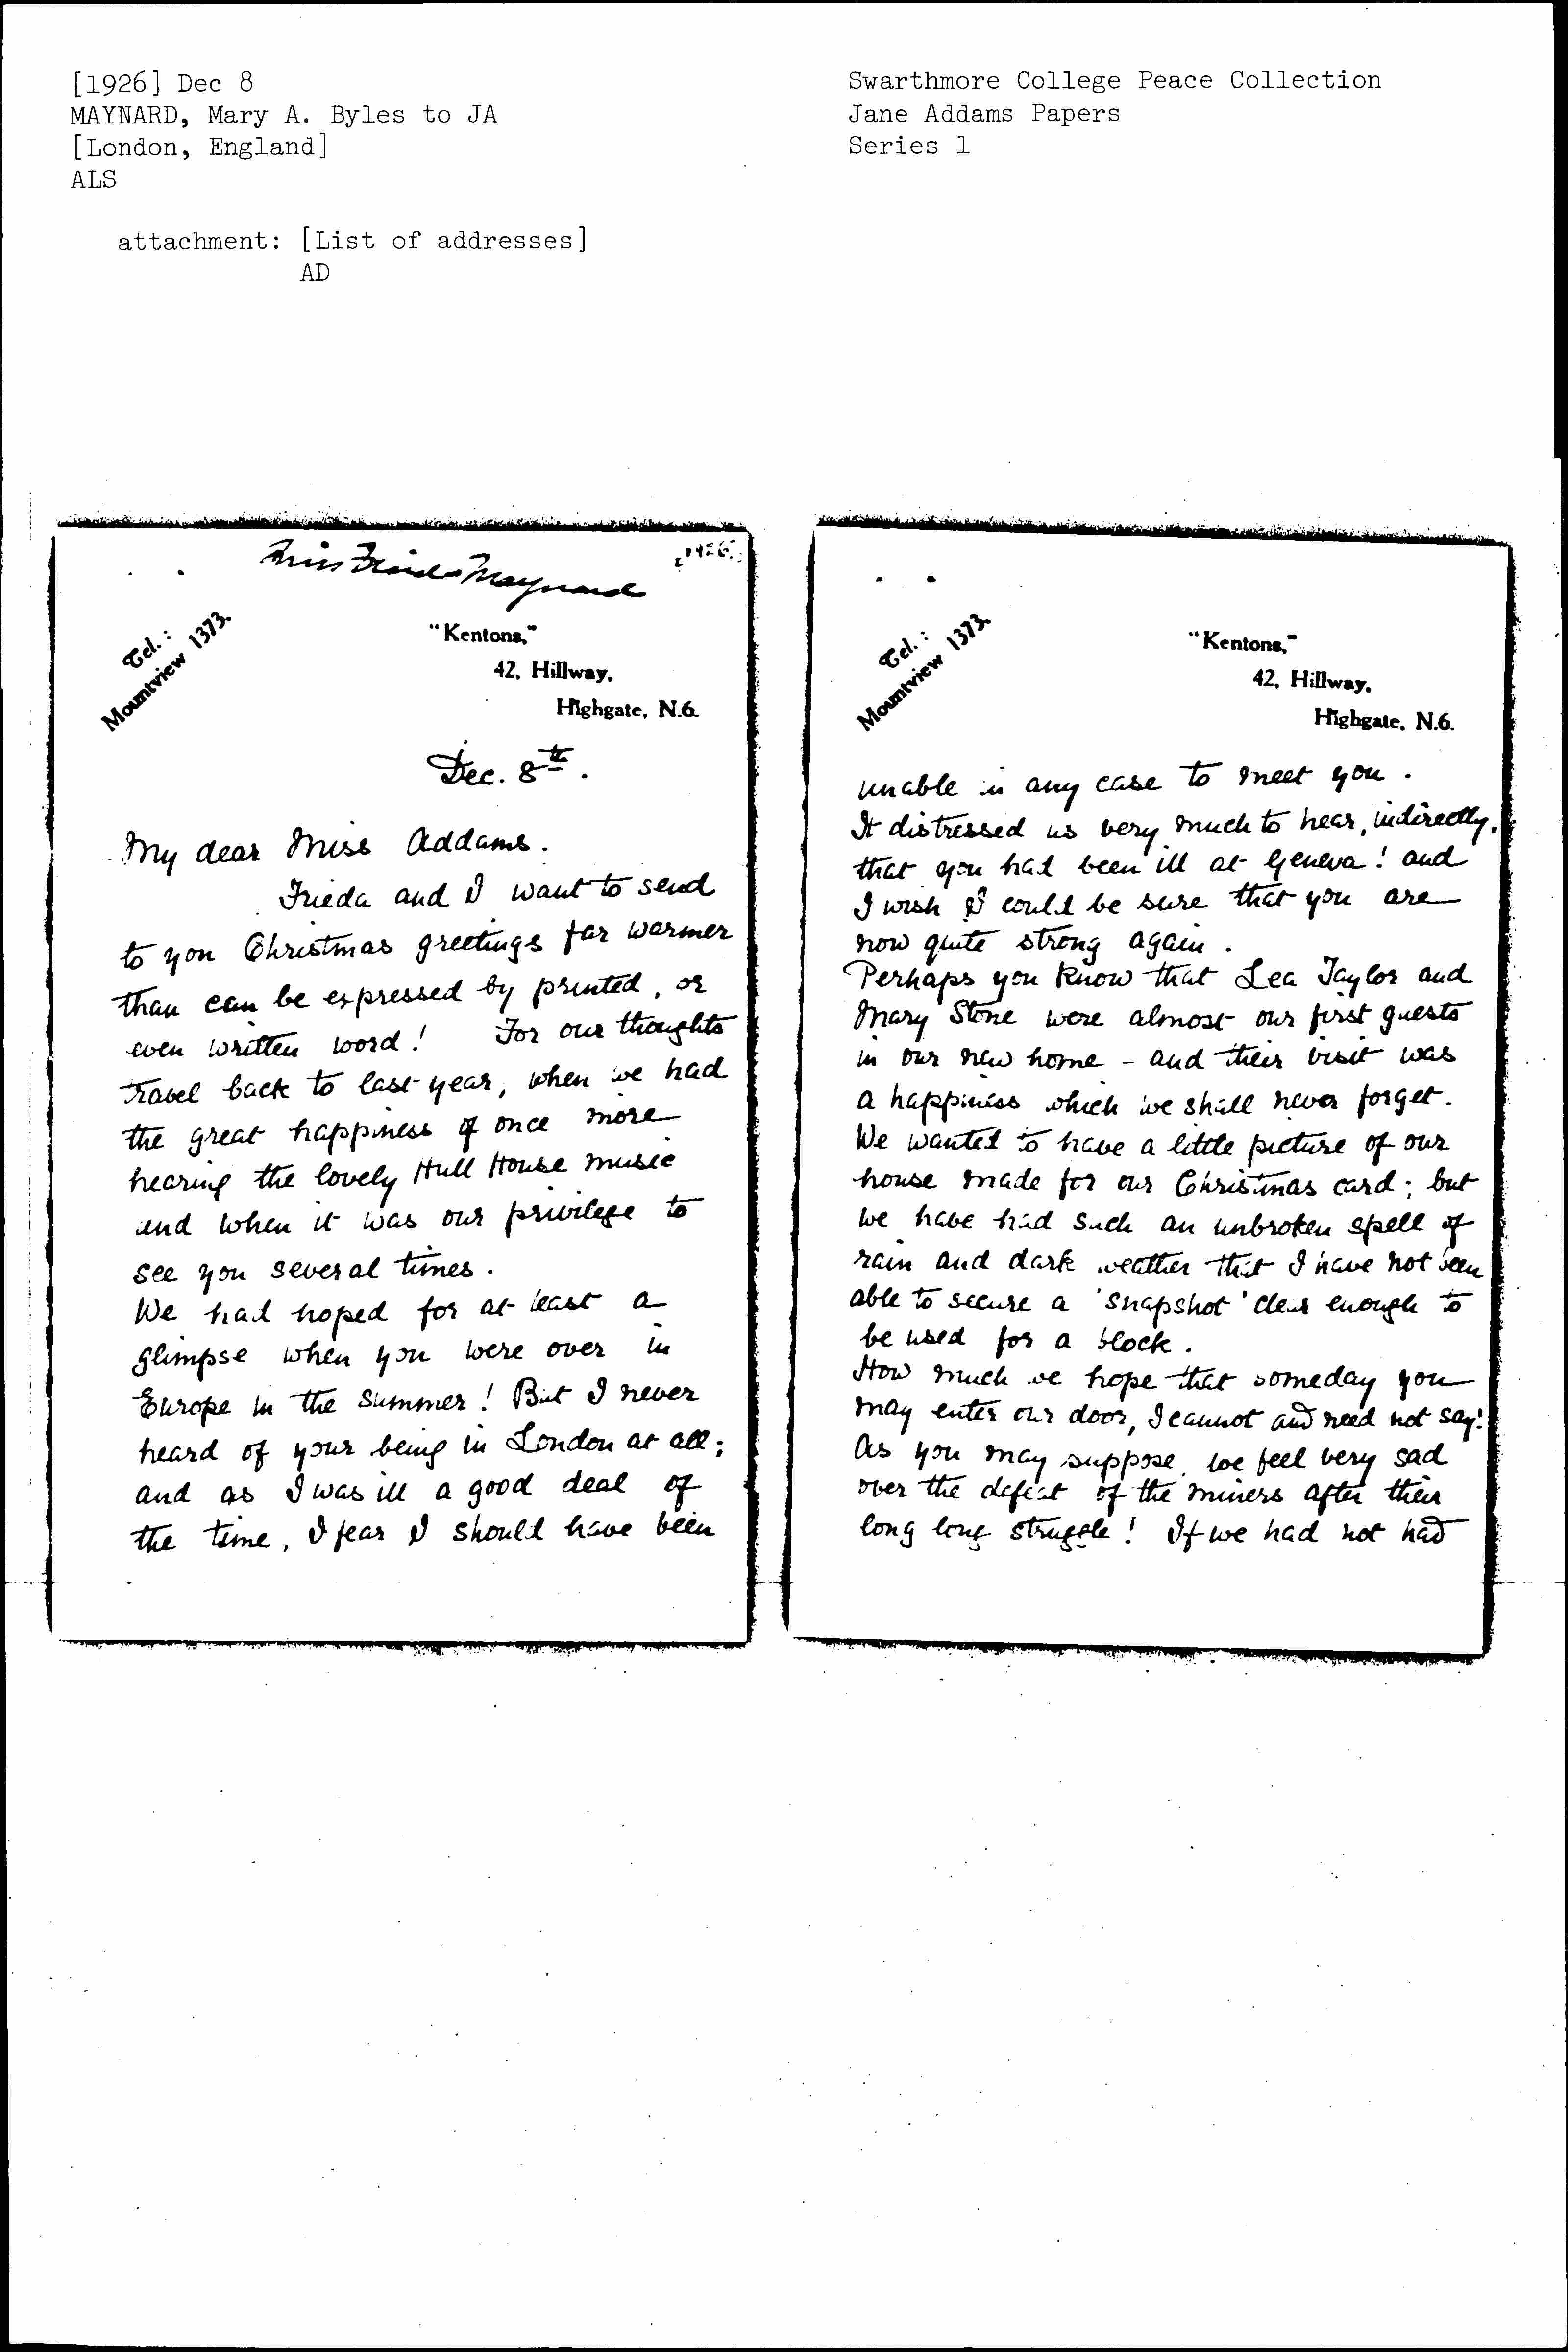 [1926] Dec 8
MAYNARD, Mary A. Byles to JA
[London, England]
ALS
attachment: [List of addresses]
AD
Swarthmore College Peace Collection
Jane Addams Papers
Series 1
Miss Frieda Maynard
1926.
Tel.:
Mountview 1373.
"Kentons,"
42, Hillway,
Highgate, N.6.
Dec. 8th.
My dear Miss Addams.
Frieda and I want to send
to you Christmas greetings far warmer
than can be expressed by printed, or
even written word! For our thoughts
travel back to last year, when we had
the great happiness of once more
hearing the lovely Hull House music
and when it was our privilege to
see you several times.
We had hoped for at least a
glimpse when you were over in
Europe in the summer! But I never
heard of your being in London at all;
and as I was ill a good deal of
the time, I fear I should have been
Tel.:
Mountview 1373.
"Kentons,"
42, Hillway,
Highgate, N.6.
unable in any case to meet you.
It distressed us very much to hear, indirectly,
that you had been ill at Geneva! and
I wish I could be sure that you are
now quite strong again.
Perhaps you know that Lea Taylor and
Mary Stone were almost our first guests
in our new home - and their visit was
a happiness which we shall never forget.
We wanted to have a little picture of our
house made for our Christmas card; but
we have had such an unbroken spell of
rain and dark weather that I have not been
able to secure a 'snapshot' clear enough to
be used for a block.
How much we hope that someday you
may enter our door, I cannot and need not say!
As you may suppose, we feel very sad
over the defeat of the miners after their
long long struggle! If we had not had